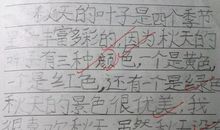 秋天的叶子是四个季节
丰富多彩的,因为秋天的
有三种颜色,一个是黄色,
是红色,还有个是绿色
秋天的景色很优美,我